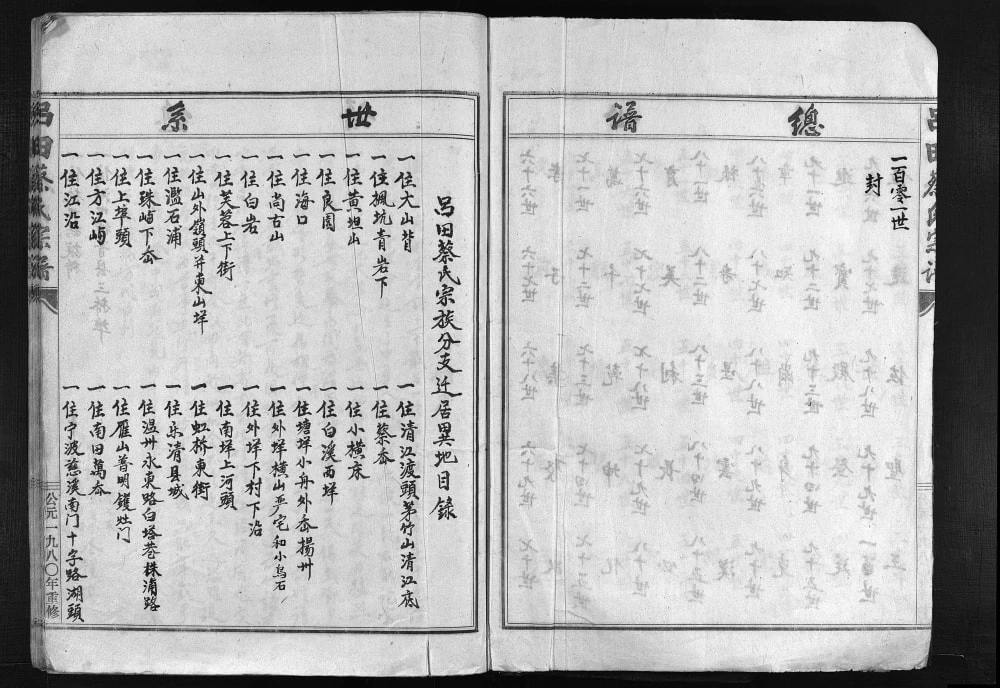 總譜
一百零一世
封
世系
呂田蔡氏宗族分支迁居異地目錄
一住大山背
一住楓坑青岩下
一住黃坦山
一住良園
一住海口
一住尚古山
一住白岩
一住芙蓉上下街
一住山外嶺頭并東山垟
一住濫石浦
一住珠屿下岙
一住上埠頭
一住方江屿
一住江沿
一住清江渡頭茅竹山清江底
一住蔡岙
一住小橫床
一住白溪西垟
一住塘垟小舟外岙揚州
一住外垟橫山严宅和小烏石
一住外垟下村下沿
一住南垟上河頭
一住虹桥東街
一住乐清县城
一住温州永東路白塔巷株浦路
一住雁山普明鑊灶门
一住南田萬岙
一住宁波慈溪南门十字路湖頭
呂田蔡氏宗譜
公元一九八〇年重修